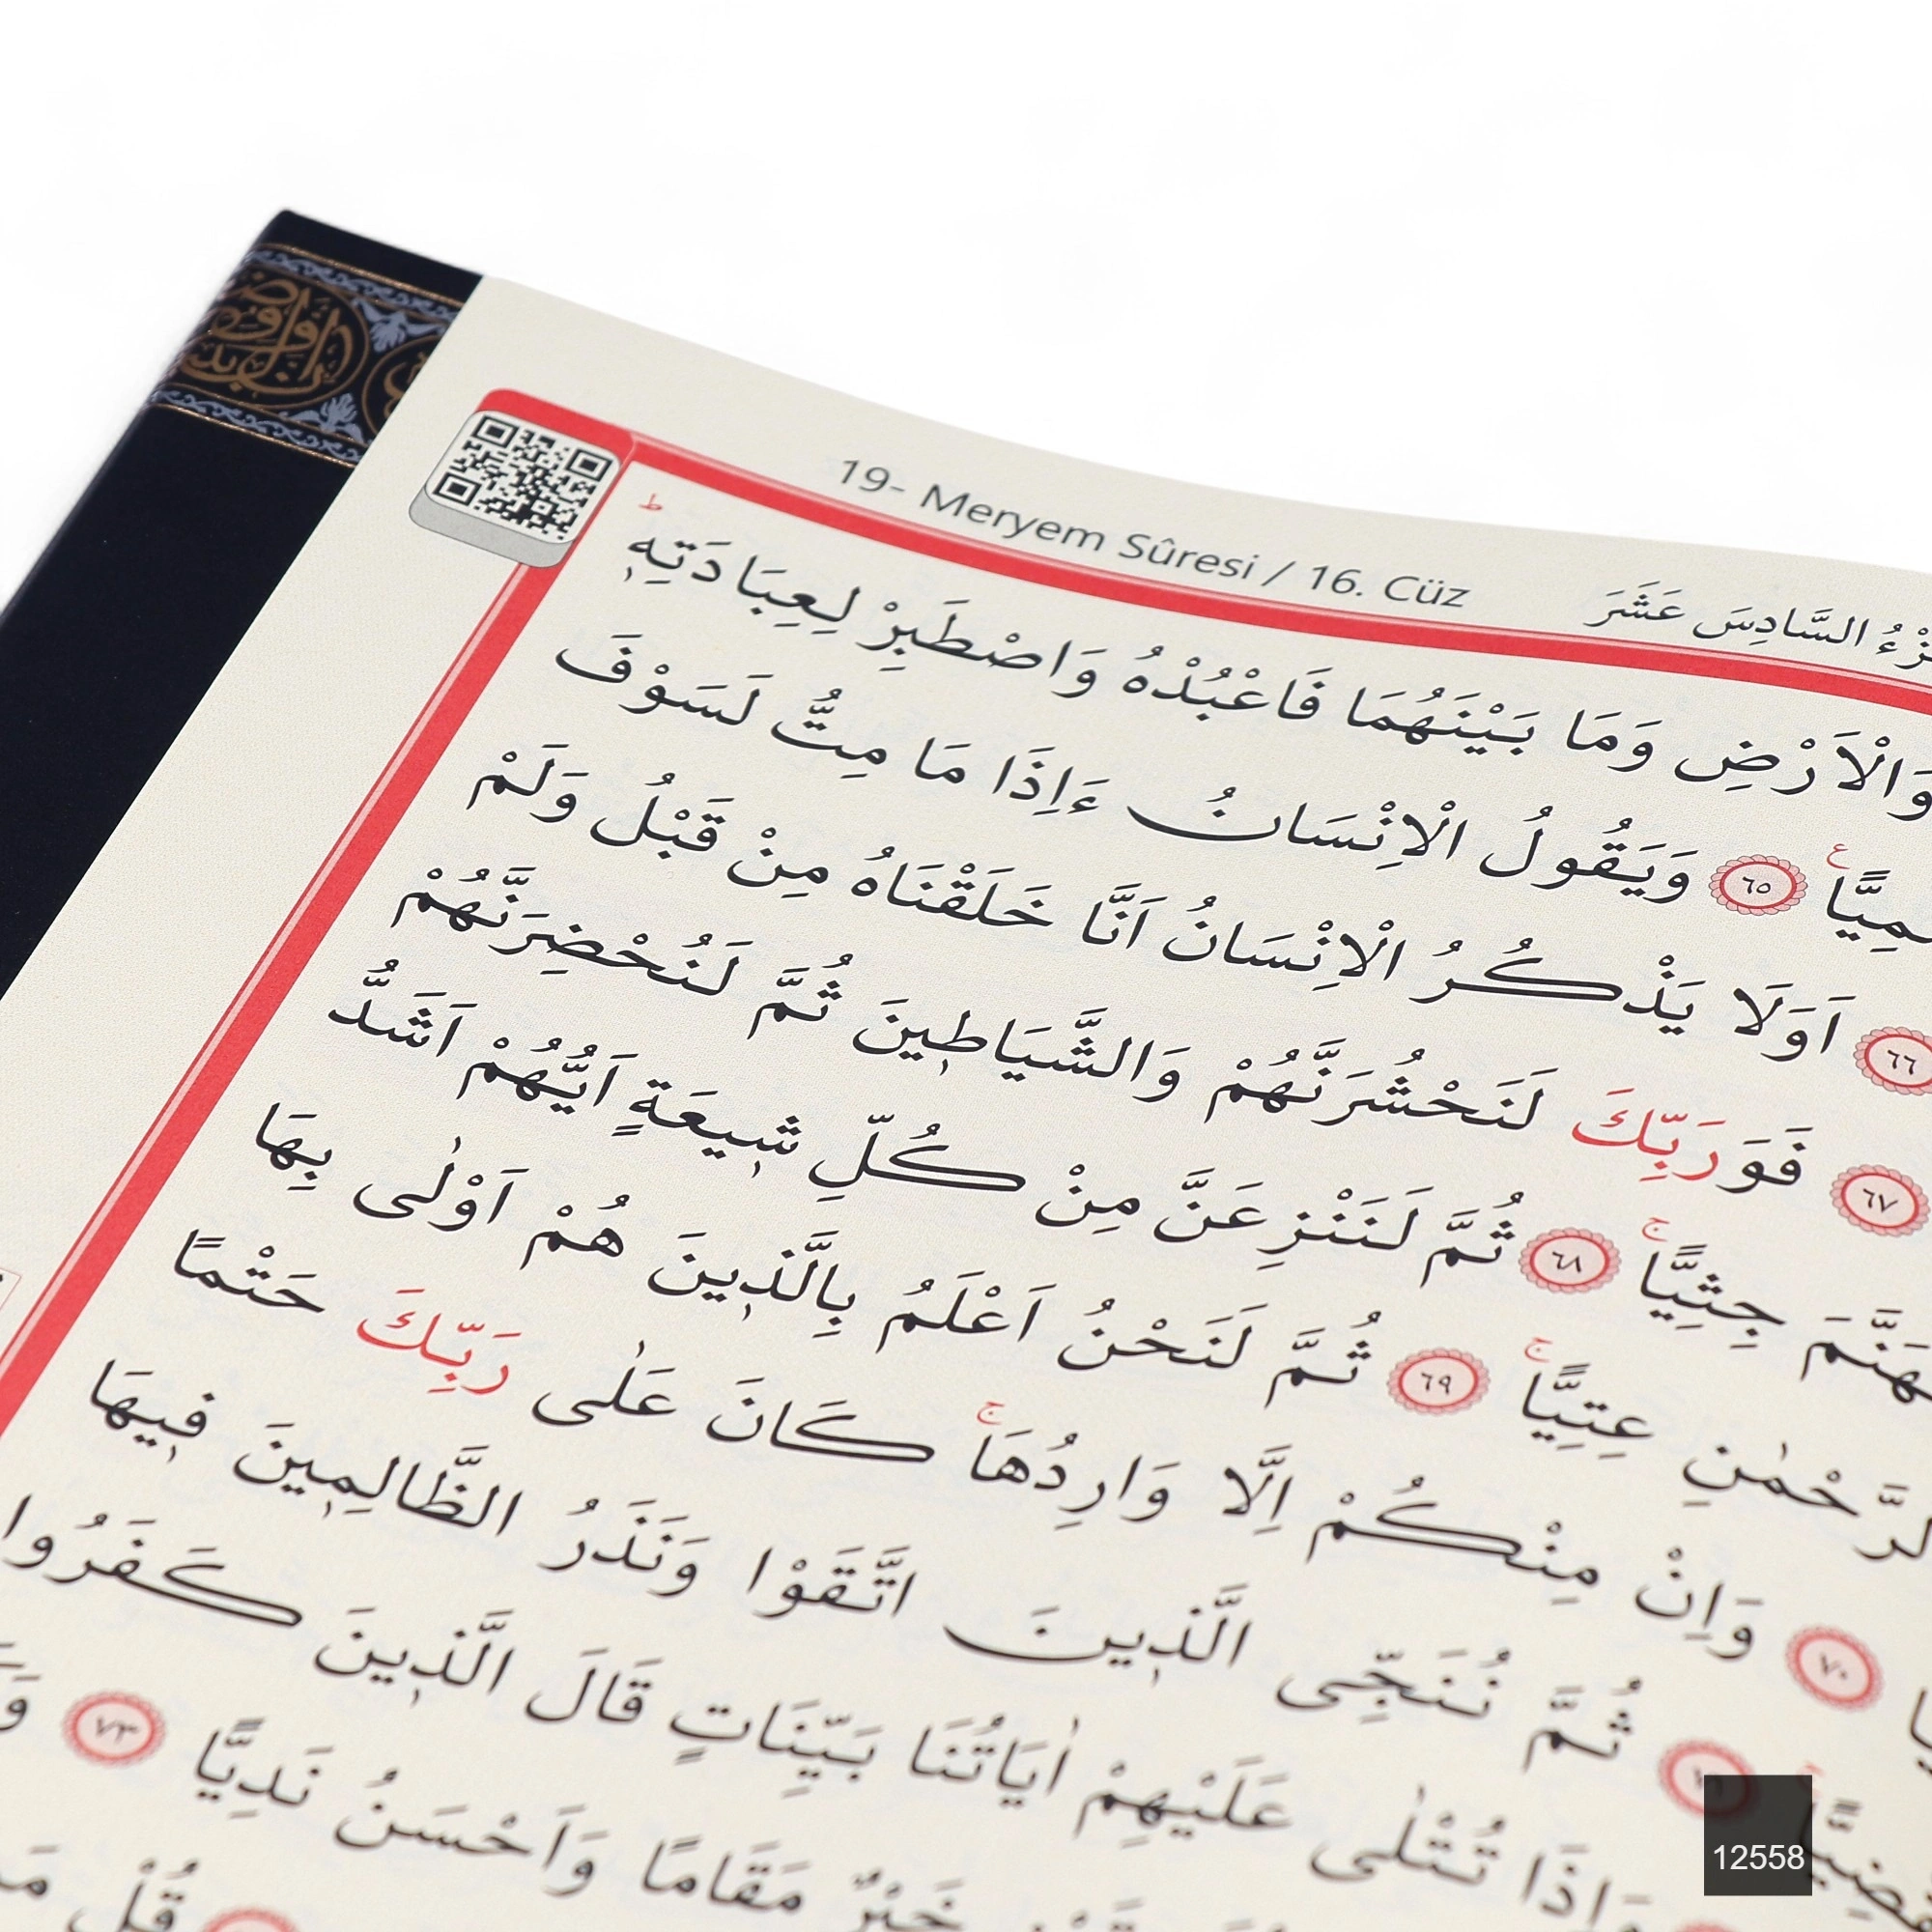 19- Meryem Sûresi / 16. Cüz
السَّادِسَ عَشَرَ
وَالْاَرْضِ وَمَا بَيْنَهُمَا فَاعْبُدْهُ وَاصْطَبِرْ لِعِبَادَتِهٖ ط
٦٥ وَيَقُولُ الْاِنْسَانُ ءَاِذَا مَا مِتُّ لَسَوْفَ
٦٦ اَوَلَا يَذْكُرُ الْاِنْسَانُ اَنَّا خَلَقْنَاهُ مِنْ قَبْلُ وَلَمْ
٦٧ فَوَرَبِّكَ لَنَحْشُرَنَّهُمْ وَالشَّيَاطٖينَ ثُمَّ لَنُحْضِرَنَّهُمْ
جِثِيًّا ج ٦٨ ثُمَّ لَنَنْزِعَنَّ مِنْ كُلِّ شٖيعَةٍ اَيُّهُمْ اَشَدُّ
عِتِيًّا ج ٦٩ ثُمَّ لَنَحْنُ اَعْلَمُ بِالَّذٖينَ هُمْ اَوْلٰى بِهَا
٧٠ وَاِنْ مِنْكُمْ اِلَّا وَارِدُهَا ج كَانَ عَلٰى رَبِّكَ حَتْمًا
ثُمَّ نُنَجِّى الَّذٖينَ اتَّقَوْا وَنَذَرُ الظَّالِمٖينَ فٖيهَا
وَاِذَا تُتْلٰى عَلَيْهِمْ اٰيَاتُنَا بَيِّنَاتٍ قَالَ الَّذٖينَ كَفَرُوا
خَيْرٌ مَقَامًا وَاَحْسَنُ نَدِيًّا ٧٣
قُلْ
12558